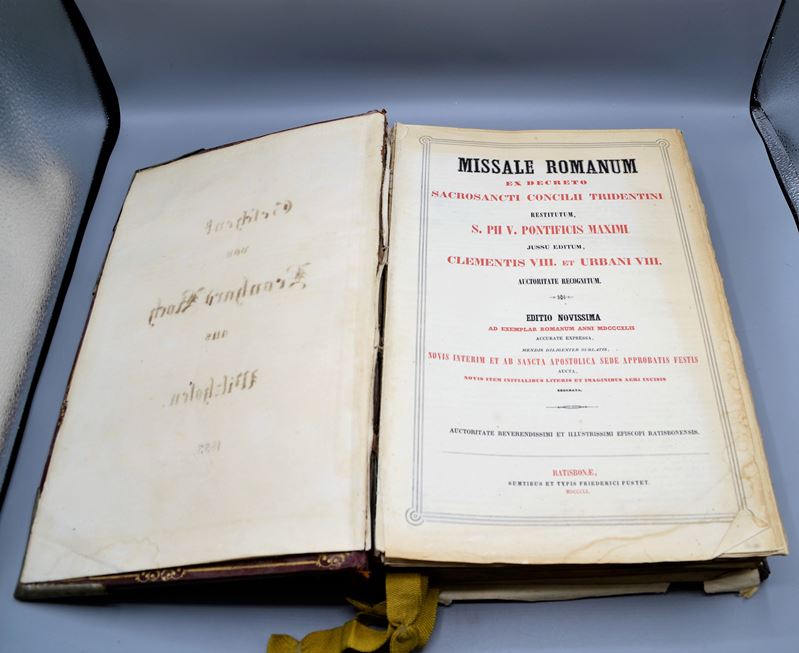 Geschenk
von
Leonhard
aus
MISSALE ROMANUM
EX DECRETO
SACROSANCTI CONCILII TRIDENTINI
RESTITUTUM,
S. PII V. PONTIFICIS MAXIMI
JUSSU EDITUM,
CLEMENTIS VIII. ET URBANI VIII.
AUCTORITATE RECOGNITUM.
EDITIO NOVISSIMA
AD EXEMPLAR ROMANUM ANNI MDCCCXLII
ACCURATE EXPRESSA,
MENDIS DILIGENTER SUBLATIS,
NOVIS INTERIM ET AB SANCTA APOSTOLICA SEDE APPROBATIS FESTIS
AUCTA,
NOVIS ITEM INITIALIBUS LITERIS ET IMAGINIBUS AERI INCISIS
AUCTORITATE REVERENDISSIMI ET ILLUSTRISSIMI EPISCOPI RATISBONENSIS.
RATISBONÆ,
SUMTIBUS ET TYPIS FRIEDERICI PUSTET.